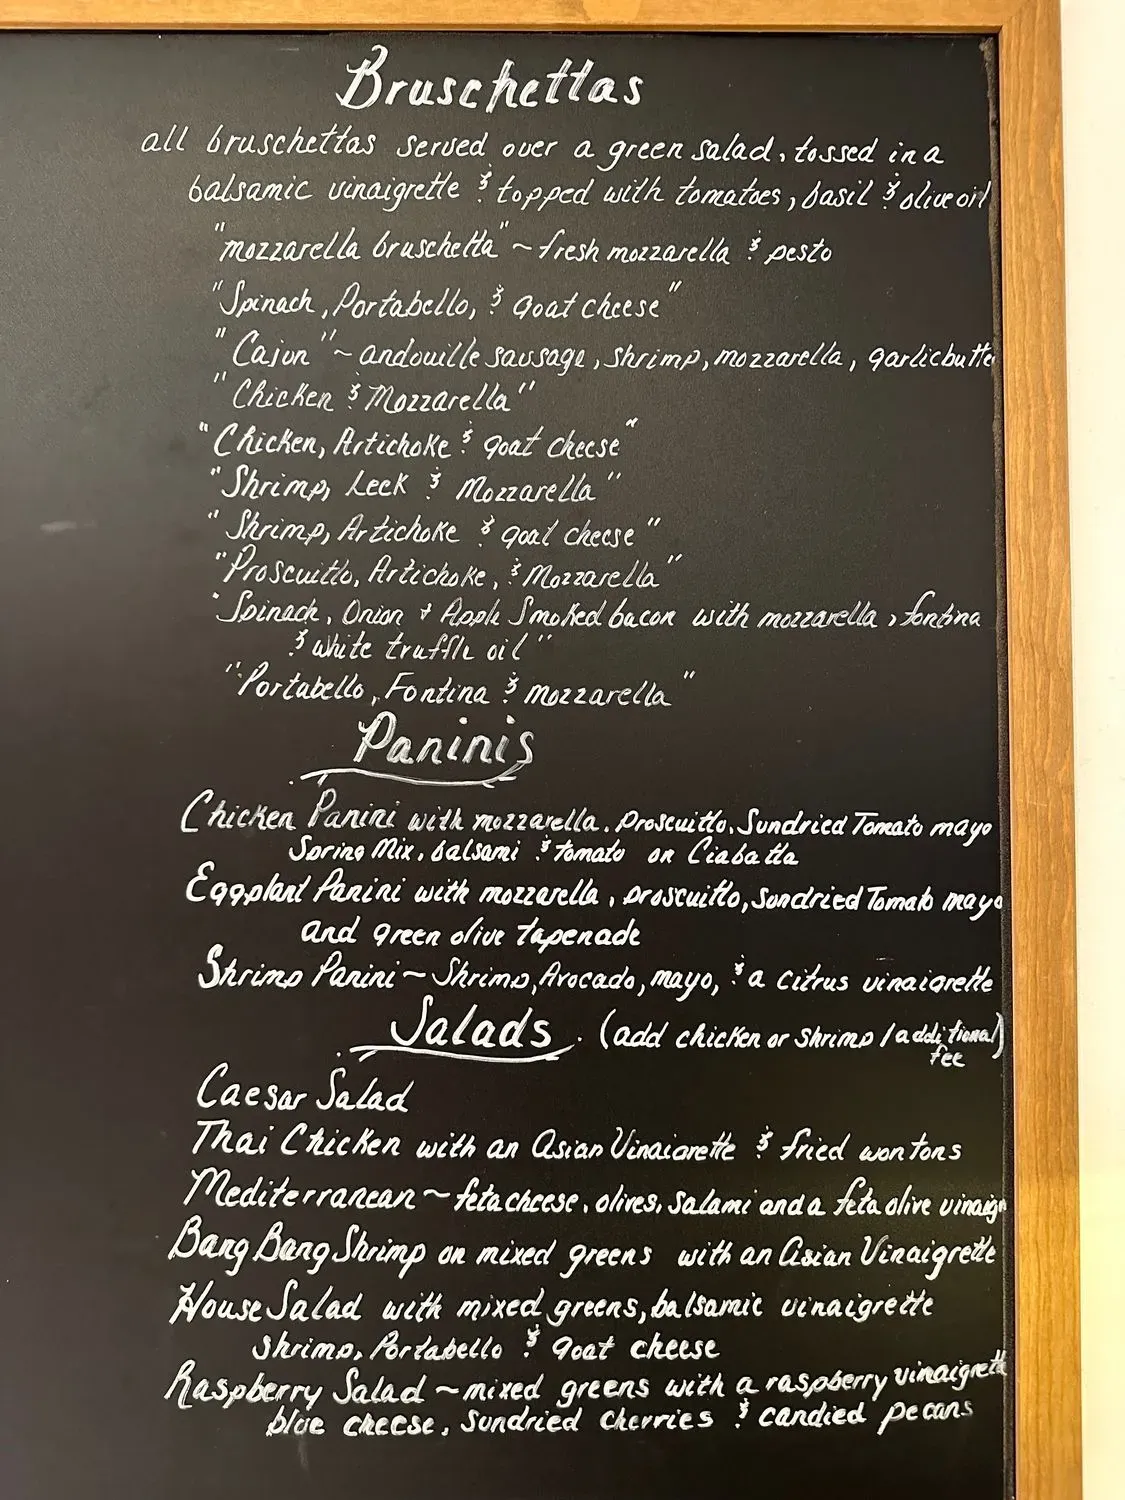 Bruschettas
all bruschettas served over a green salad, tossed in a
balsamic vinaigrette & topped with tomatoes, basil & olive oil
"mozzarella bruschetta" ~ fresh mozzarella & pesto
"Spinach, Portabello, & goat cheese"
"Cajun" ~ andouille sausage, shrimp, mozzarella, garlic butte
"Chicken & Mozzarella"
"Chicken, Artichoke & goat cheese"
"Shrimp, Leek & Mozzarella"
"Shrimp, Artichoke & goat cheese"
"Proscuitto, Artichoke, & Mozzarella"
"Spinach, Onion + Apple Smoked bacon with mozzarella, fontina
& white truffle oil"
"Portabello, Fontina & mozzarella"
Paninis
Chicken Panini with mozzarella, proscuitto, Sundried Tomato mayo
Spring Mix, balsami & tomato on Ciabatta
Eggplant Panini with mozzarella, proscuitto, Sundried Tomato mayo
and green olive tapenade
Shrimp Panini ~ Shrimp, Avocado, mayo, & a citrus vinaigrette
Salads. (add chicken or shrimp / additional)
fee
Caesar Salad
Thai Chicken with an Asian Vinaigrette & fried wontons
Mediterranean ~ feta cheese, olives, salami and a feta olive vinaigr
Bang Bang Shrimp on mixed greens with an Asian Vinaigrette
House Salad with mixed greens, balsamic vinaigrette
shrimp, Portabello & goat cheese
Raspberry Salad ~ mixed greens with a raspberry vinaigrette
blue cheese, sundried cherries & candied pecans